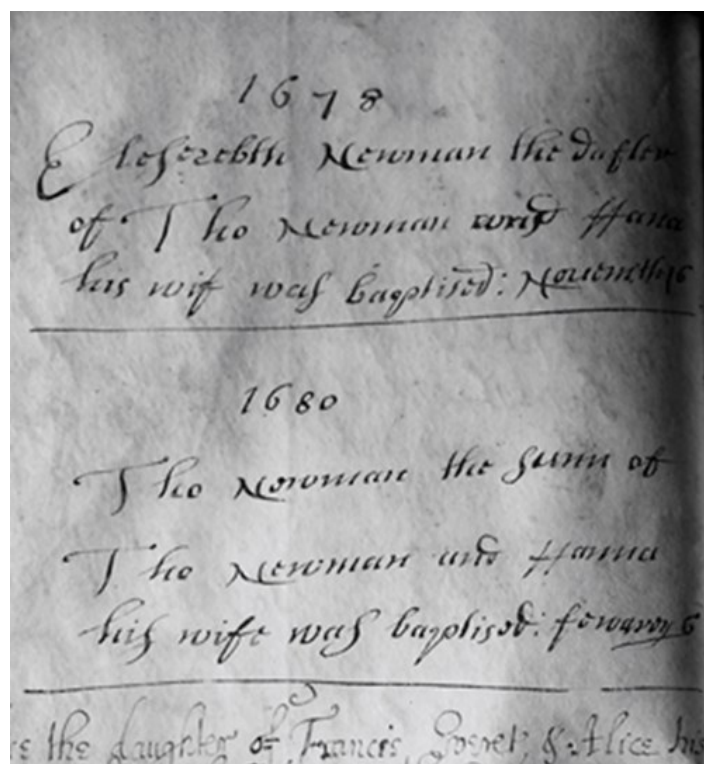 1678
Eleserebth Newman the dafter
of Tho Newman and Hana
his wif was baptised: Nouem the 16
1680
Tho Newman the sunn of
Tho Newman and Hanna
his wife was baptised: fewarey 6
the daughter of Francis & Alice his